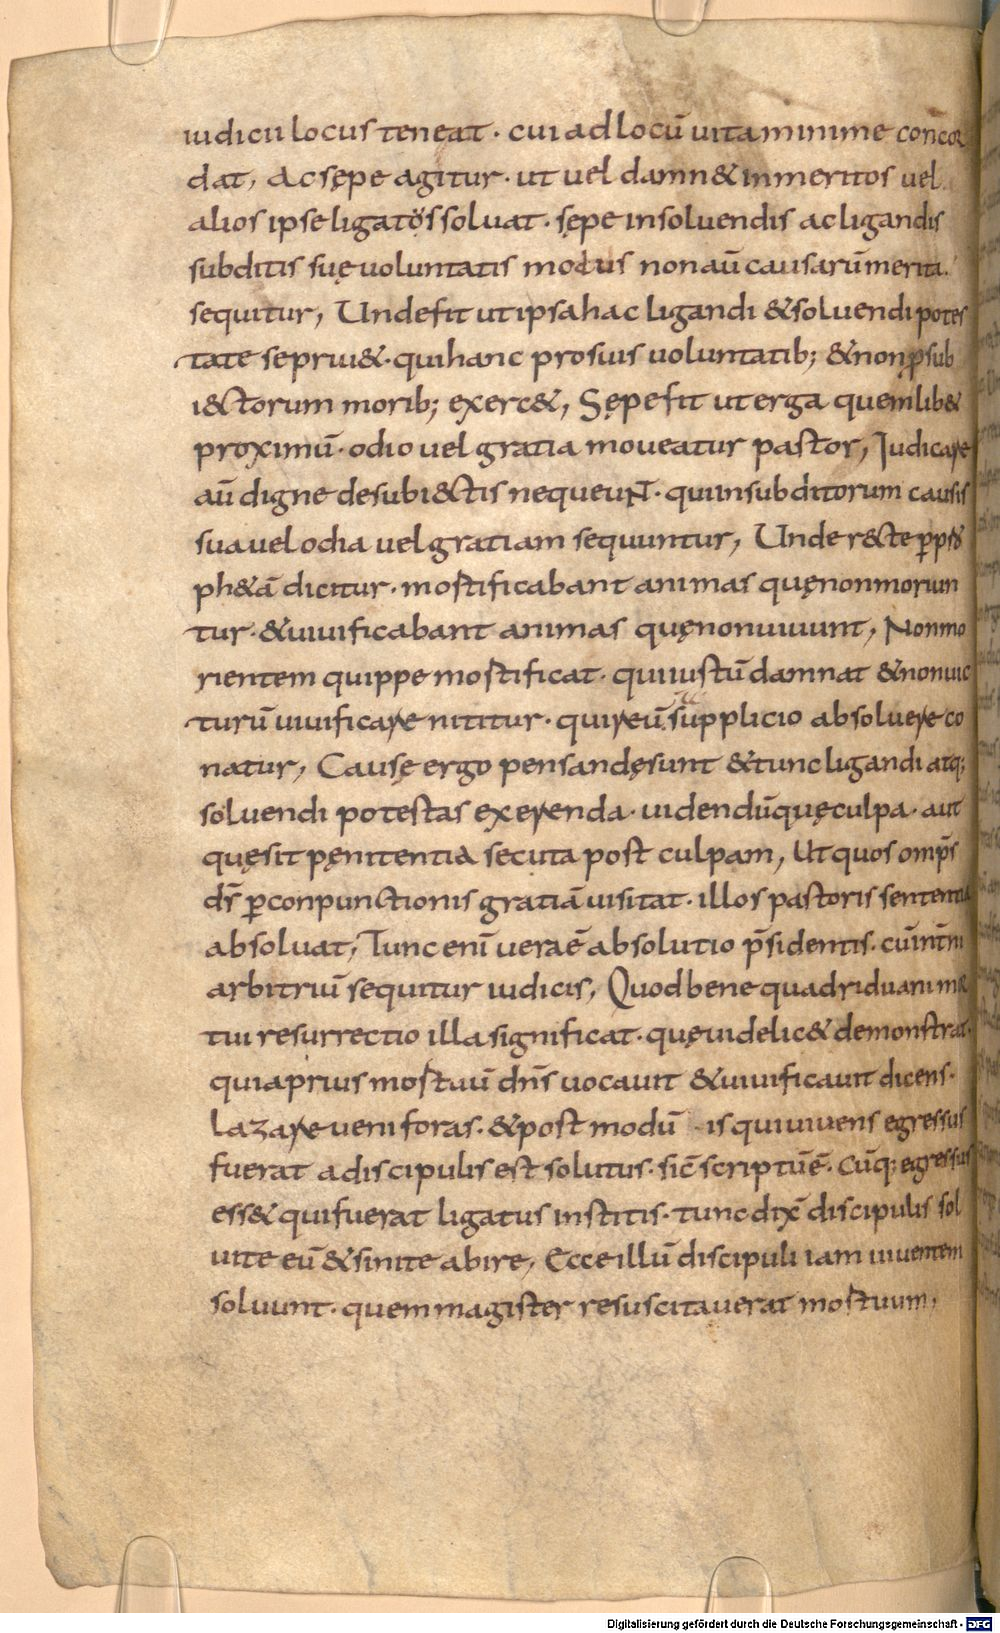 iudicii locus teneat · cui ad locū uita minime concor
dat, Ac sępe agitur · ut uel damn& inmeritos uel
alios ipse ligatos soluat · sępe insoluendis ac ligandis
subditis suę uoluntatis motus non aū causarū merita
sequitur, Unde fit ut ipsa hac ligandi & soluendi potes
tate se priu& · qui hanc pro suis uoluntatib; & non p sub
i&torum morib; exerc&, Sępe fit ut erga quemlib&
proximū · odio uel gratia moueatur pastor, Iudicare
aū digne de subi&tis nequeunt · qui in subditorum causis
sua uel odia uel gratiam sequuntur, Unde r&te p
ph&ā dicitur · mortificabant animas quę non moriun
tur · & uiuificabant animas quę non uiuunt, Non mo
rientem quippe mortificat · qui iustū damnat & non uic
turū uiuificare nititur · qui reū supplicio absoluere co
natur, Causę ergo pensandę sunt & tunc ligandi atq;
soluendi potestas exerenda · uidendū quę culpa · aut
quę sit pęnitentia secuta post culpam, Ut quos omp̄s
ds̄ p conpunctionis gratiā uisitat · illos pastoris sententia
absoluat, Tunc enī uera ē absolutio p̄sidentis · cū int̄ni
arbitriū sequitur iudicis, Quod bene quadriduani mor
tui resurrectio illa significat · quę uidelic& demonstrat ·
quia prius mortuū dn̄s uocauit & uiuificauit dicens ·
Lazare ueni foras · & post modū is qui uiuens egressus
fuerat a discipulis est solutus · sic̄ scriptū ē · Cūq; egressus
ess& qui fuerat ligatus institis · tunc dix̄ discipulis sol
uite eū & sinite abire, Ecce illū discipuli iam uiuentem
soluunt · quem magister resuscitauerat mortuum,
Digitalisierung gefördert durch die Deutsche Forschungsgemeinschaft - DFG